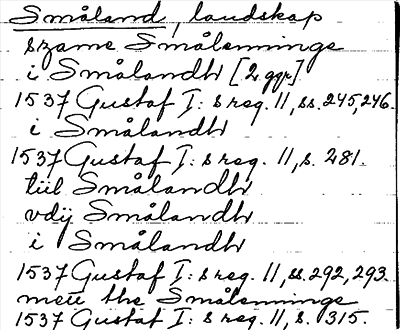 Småland, landskap
szame Smålenninge
i Smålandh [2 ggr]
1537 Gustaf I:s reg. 11, ss. 245, 246.
i Smålandh
1537 Gustaf I:s reg. 11, s. 281.
tiil Smålandh
vdij Smålandh
i Smålandh
1537 Gustaf I:s reg. 11, ss. 292, 293.
men the Smålenninge
1537 Gustaf I:s reg. 11, s. 315.